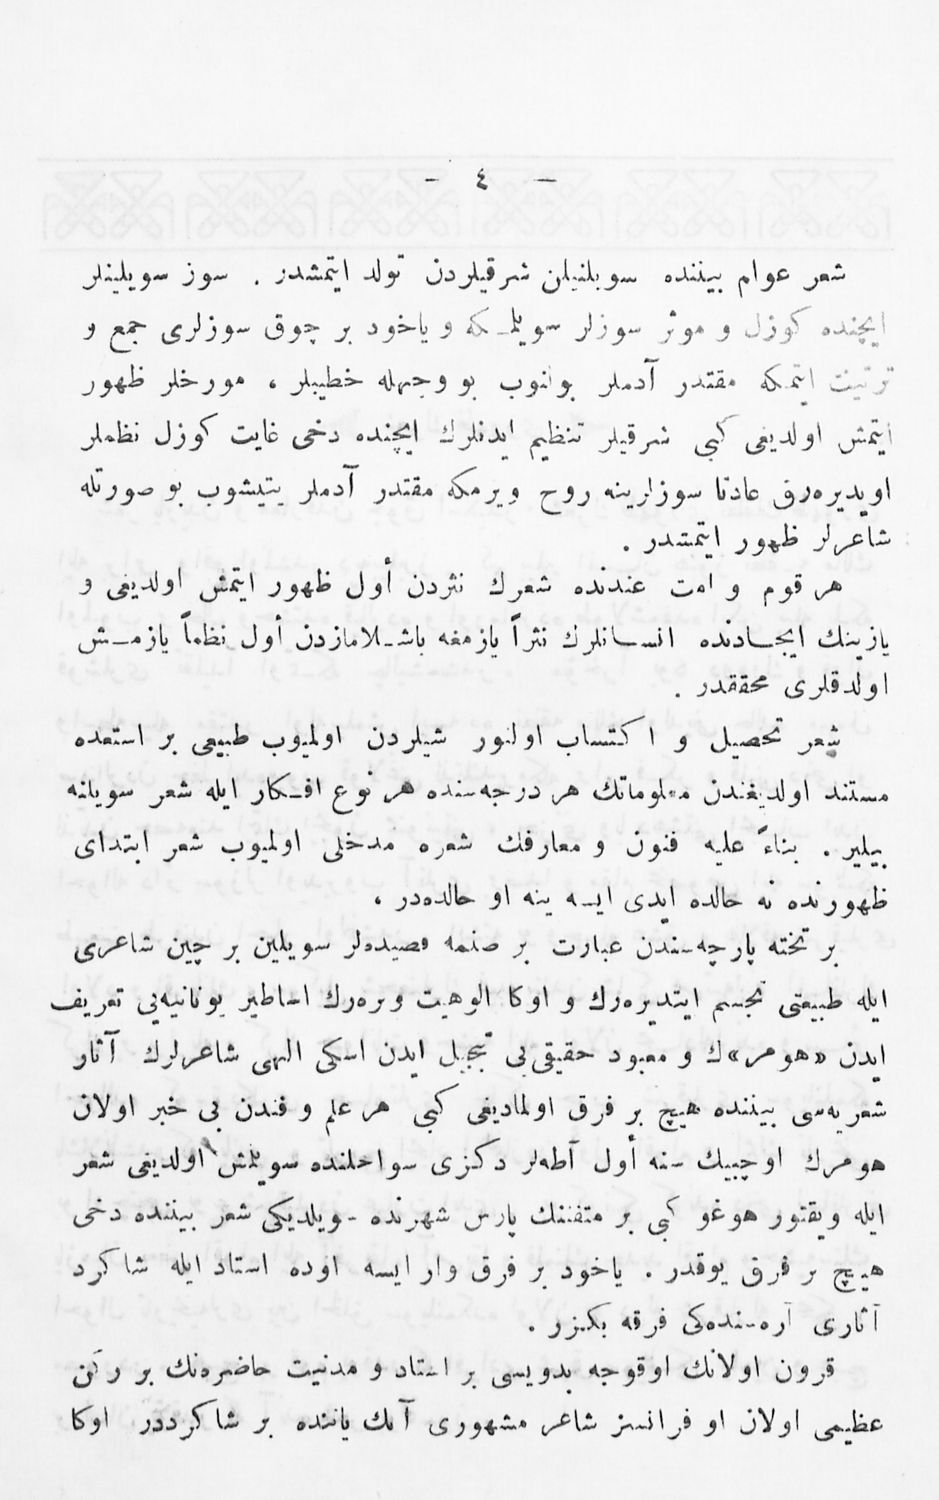 — ٤ —
شعر عوام بیننده سویلنیلن شرقیلردن تولد ایتمشدر . سوز سویلینلر
ایچنده کوزل و موثر سوزلر سویلمکه و یاخود بر چوق سوزلری جمع و
ترتیب ایتمکه مقتدر آدملر بولنوب بو وجهله خطیبلر ، مورخلر ظهور
ایتمش اولدیغی کبی شرقیلر تنظیم ایدنلرك ایچنده دخی غایت کوزل نظملر
اویدیره‌رق عادتا سوزلرینه روح ویرمکه مقتدر آدملر یتیشوب بو صورتله
شاعرلر ظهور ایتمشدر .
هر قوم و امت عندنده شعرك نثردن أول ظهور ایتمش اولدیغی و
یازینك ایجادنده انسانلرك نثراً یازمغه باشلامازدن أول نظماً یازمش
اولدقلری محققدر .
شعر تحصیل و اکتساب اولنور شیلردن اولمیوب طبیعی بر استعده
مستند اولدیغندن معلوماتك هر درجه‌سنده هر نوع افکار ایله شعر سویلنه
بیلیر . بناءً علیه فنون و معارفك شعره مدخلی اولمیوب شعر ابتدای
ظهورنده نه حالده ایدی ایسه ینه او حالده‌در ،
بر تخته پارچه‌سندن عبارت بر صنمه قصیده‌لر سویلین بر چین شاعری
ایله طبیعتی تجسم ایتدیره‌رك و اوکا الوهیت ویره‌رك اساطیر یونانیه‌یی تعریف
ایدن «هومر»ك و معبود حقیقی‌یی تبجیل ایدن اسکی الهی شاعرلرك آثار
شعریه‌سی بیننده هیچ بر فرق اولمادیغی کبی هر علم و فندن بی خبر اولان
هومرك اوچبیك سنه أول آطه‌لر دکزی سواحلنده سویلمش اولدیغی شعر
ایله ویقتور هوغو کبی بر متفننك پارس شهرنده سویلدیکی شعر بیننده دخی
هیچ بر فرق یوقدر . یاخود بر فرق وار ایسه اوده استاد ایله شاکرد
آثاری آره‌سنده‌کی فرقه بکزر .
قرون اولانك اوقوجه بدویسی بر استاد و مدنیت حاضره‌نك بر رکن
عظیمی اولان او فرانسز شاعر مشهوری آنك یاننده بر شاکرددر اوکا